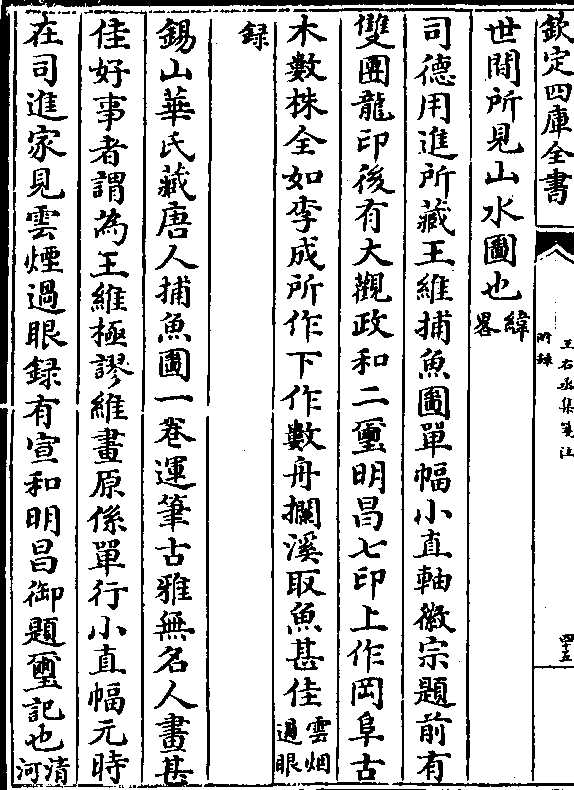 欽定四庫全書
王右丞集箋注
附錄
四十五
世間所見山水圖也緯畧
司德用進所藏王維捕魚圖單幅小直軸徽宗題前有
雙團龍印後有大觀政和二璽明昌七印上作岡阜古
木數株全如李成所作下作數舟攔溪取魚甚佳雲烟過眼
録
錫山華氏藏唐人捕魚圖一卷運筆古雅無名人畫甚
佳好事者謂為王維極謬維畫原係單行小直幅元時
在司進家見雲煙過眼録有宣和明昌御題璽記也清河